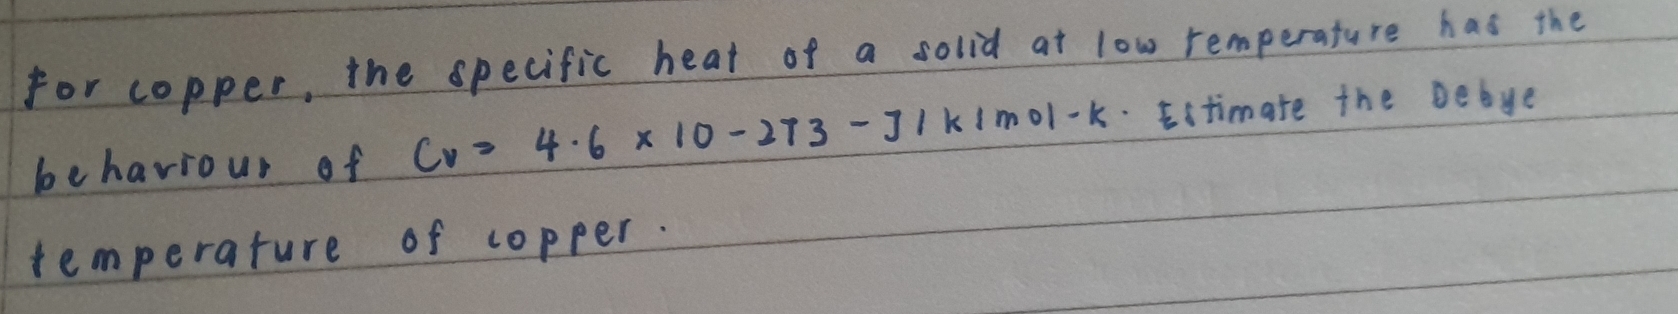 For copper, the specific heat of a solid at low temperature has the
behaviour of Cv = 4.6 x 10 - 2T3 - J/k/mol-k. Estimate the Debye
temperature of copper.